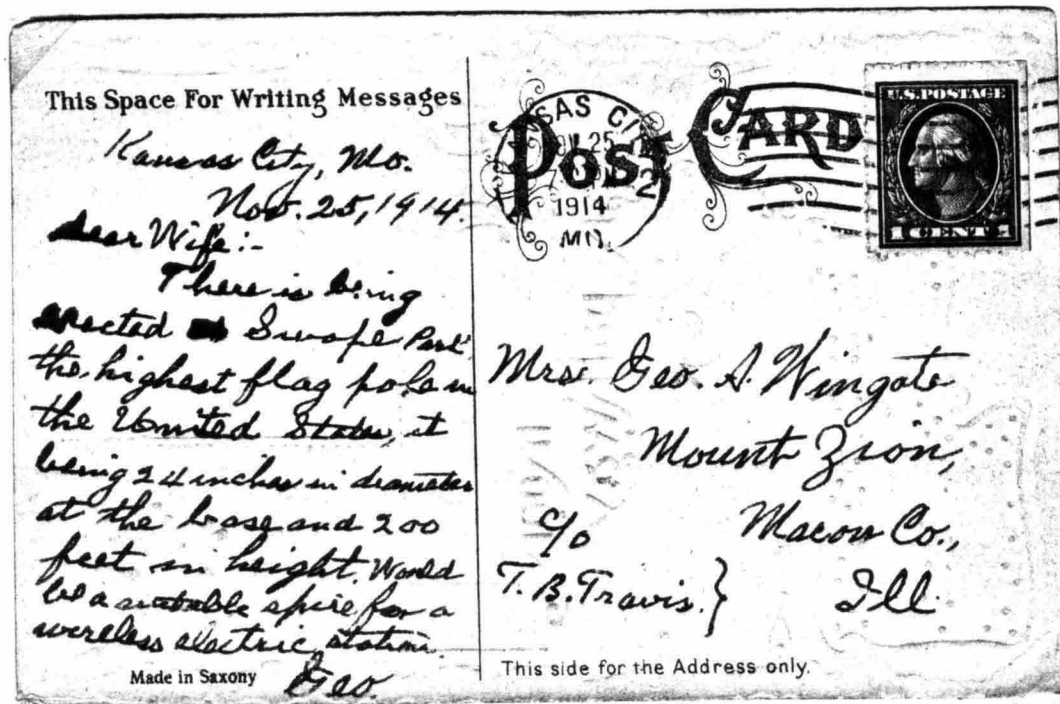 This Space For Writing Messages
Kansas City, Mo.
Nov. 25, 1914.
Dear Wife:-
There is being
erected Swope Park
the highest flag pole in
the United States, it
being 24 inches in diameter
at the base and 200
feet in height. Would
be a suitable spire for a
wireless electric station.
Geo.
Made in Saxony
POST CARD
SAS CI
25
1914
MO.
2
U.S. POSTAGE
1 CENT 1
Mrs. Geo. A. Wingate
Mount Zion,
c/o Macon Co.,
T. B. Travis. } Ill.
This side for the Address only.